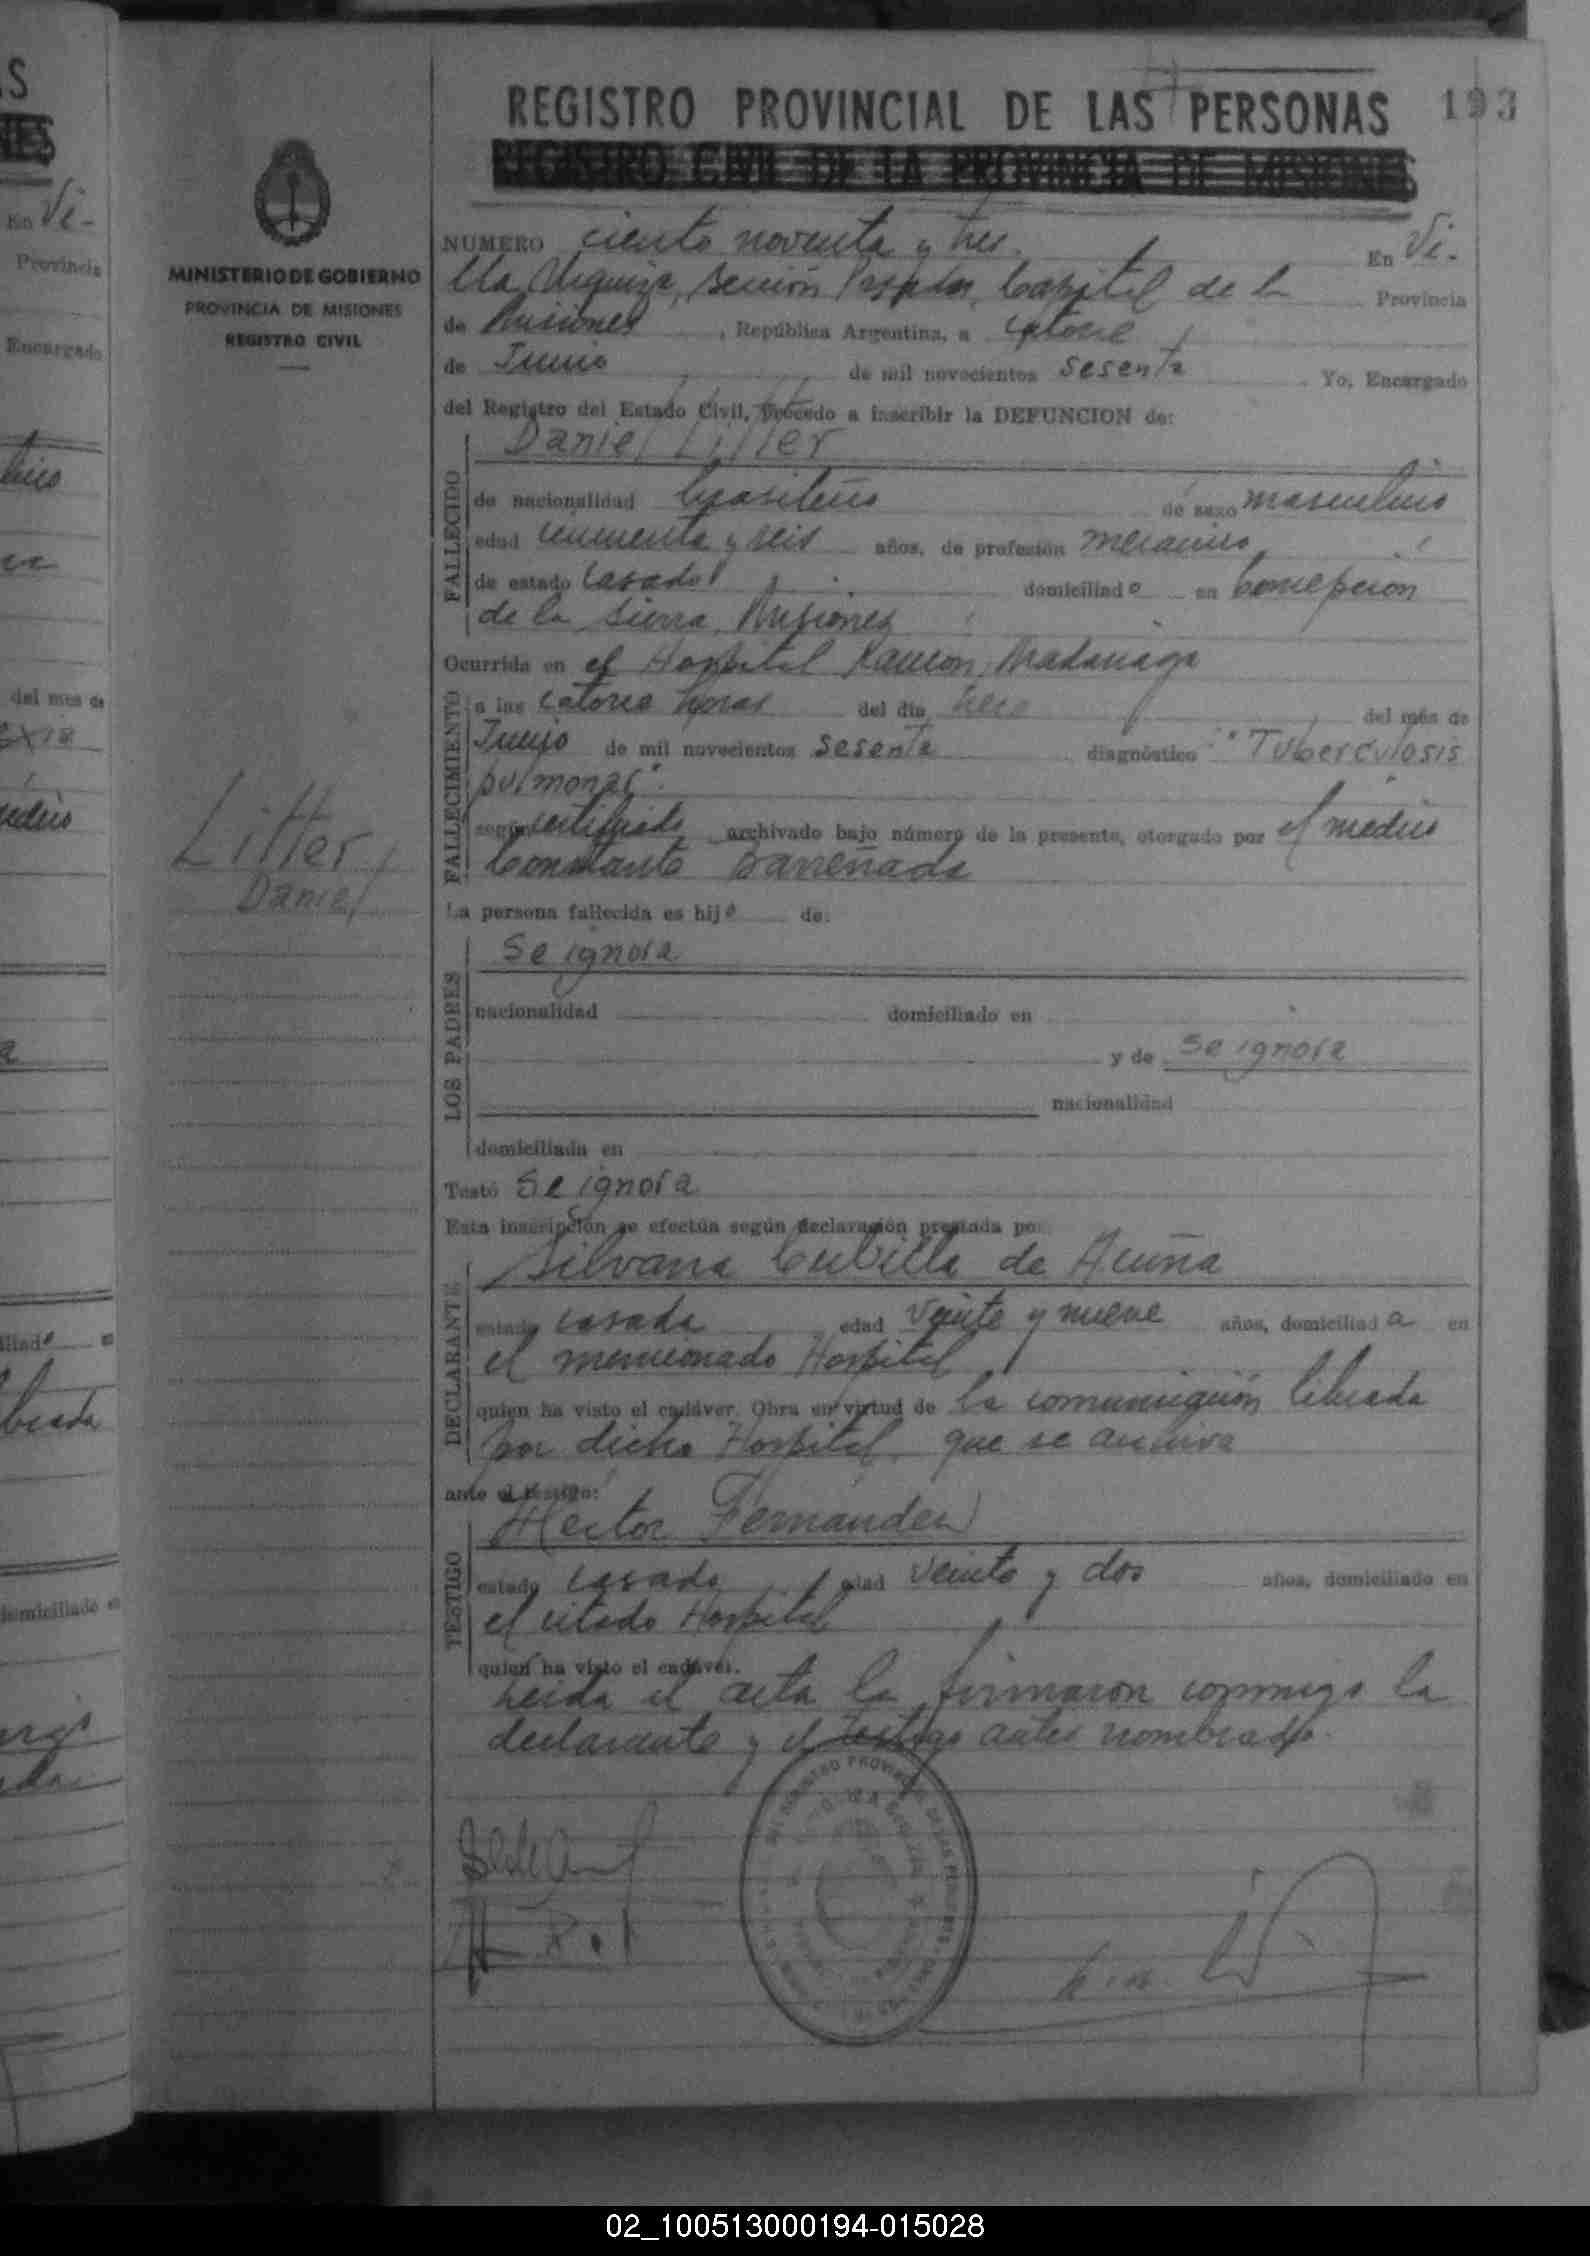 REGISTRO PROVINCIAL DE LAS PERSONAS 193
REGISTRO CIVIL DE LA PROVINCIA DE MISIONES
MINISTERIO DE GOBIERNO
PROVINCIA DE MISIONES
REGISTRO CIVIL
NUMERO ciento noventa y tres. En Vi-
lla Urquiza, Sección Posadas, Capital de la Provincia
de Misiones, República Argentina, a catorce
de Junio de mil novecientos sesenta. Yo, Encargado
del Registro del Estado Civil, procedo a inscribir la DEFUNCION de:
Daniel Litter
FALLECIDO
de nacionalidad brasileño de sexo masculino
edad cincuenta y seis años, de profesión mecánico
de estado casado domiciliado en Concepción
de la Sierra, Misiones
Ocurrida en el Hospital Ramon Madariaga
FALLECIMIENTO
a las catorce horas del día trece del més de
Junio de mil novecientos sesenta diagnóstico "Tuberculosis
pulmonar".
según certificado archivado bajo número de la presente, otorgado por el medico
Constante Barreñada
Litter
Daniel
La persona fallecida es hijo de:
LOS PADRES
Se ignora
nacionalidad domiciliado en
y de Se ignora
nacionalidad
domiciliada en
Testó Se ignora
Esta inscripción se efectúa según declaración prestada por:
DECLARANTE
Silvana Cubilla de Acuña
estado casada edad veinte y nueve años, domiciliada en
el mencionado Hospital
quien ha visto el cadáver. Obra en virtud de la comunicación librada
por dicho Hospital, que se archiva
ante el testigo:
TESTIGO
Hector Fernandez
estado casado edad veinte y dos años, domiciliado en
el citado Hospital
quien ha visto el cadáver.
Leida el acta la firmaron conmigo la
declarante y el testigo antes nombrado.
02_100513000194-015028